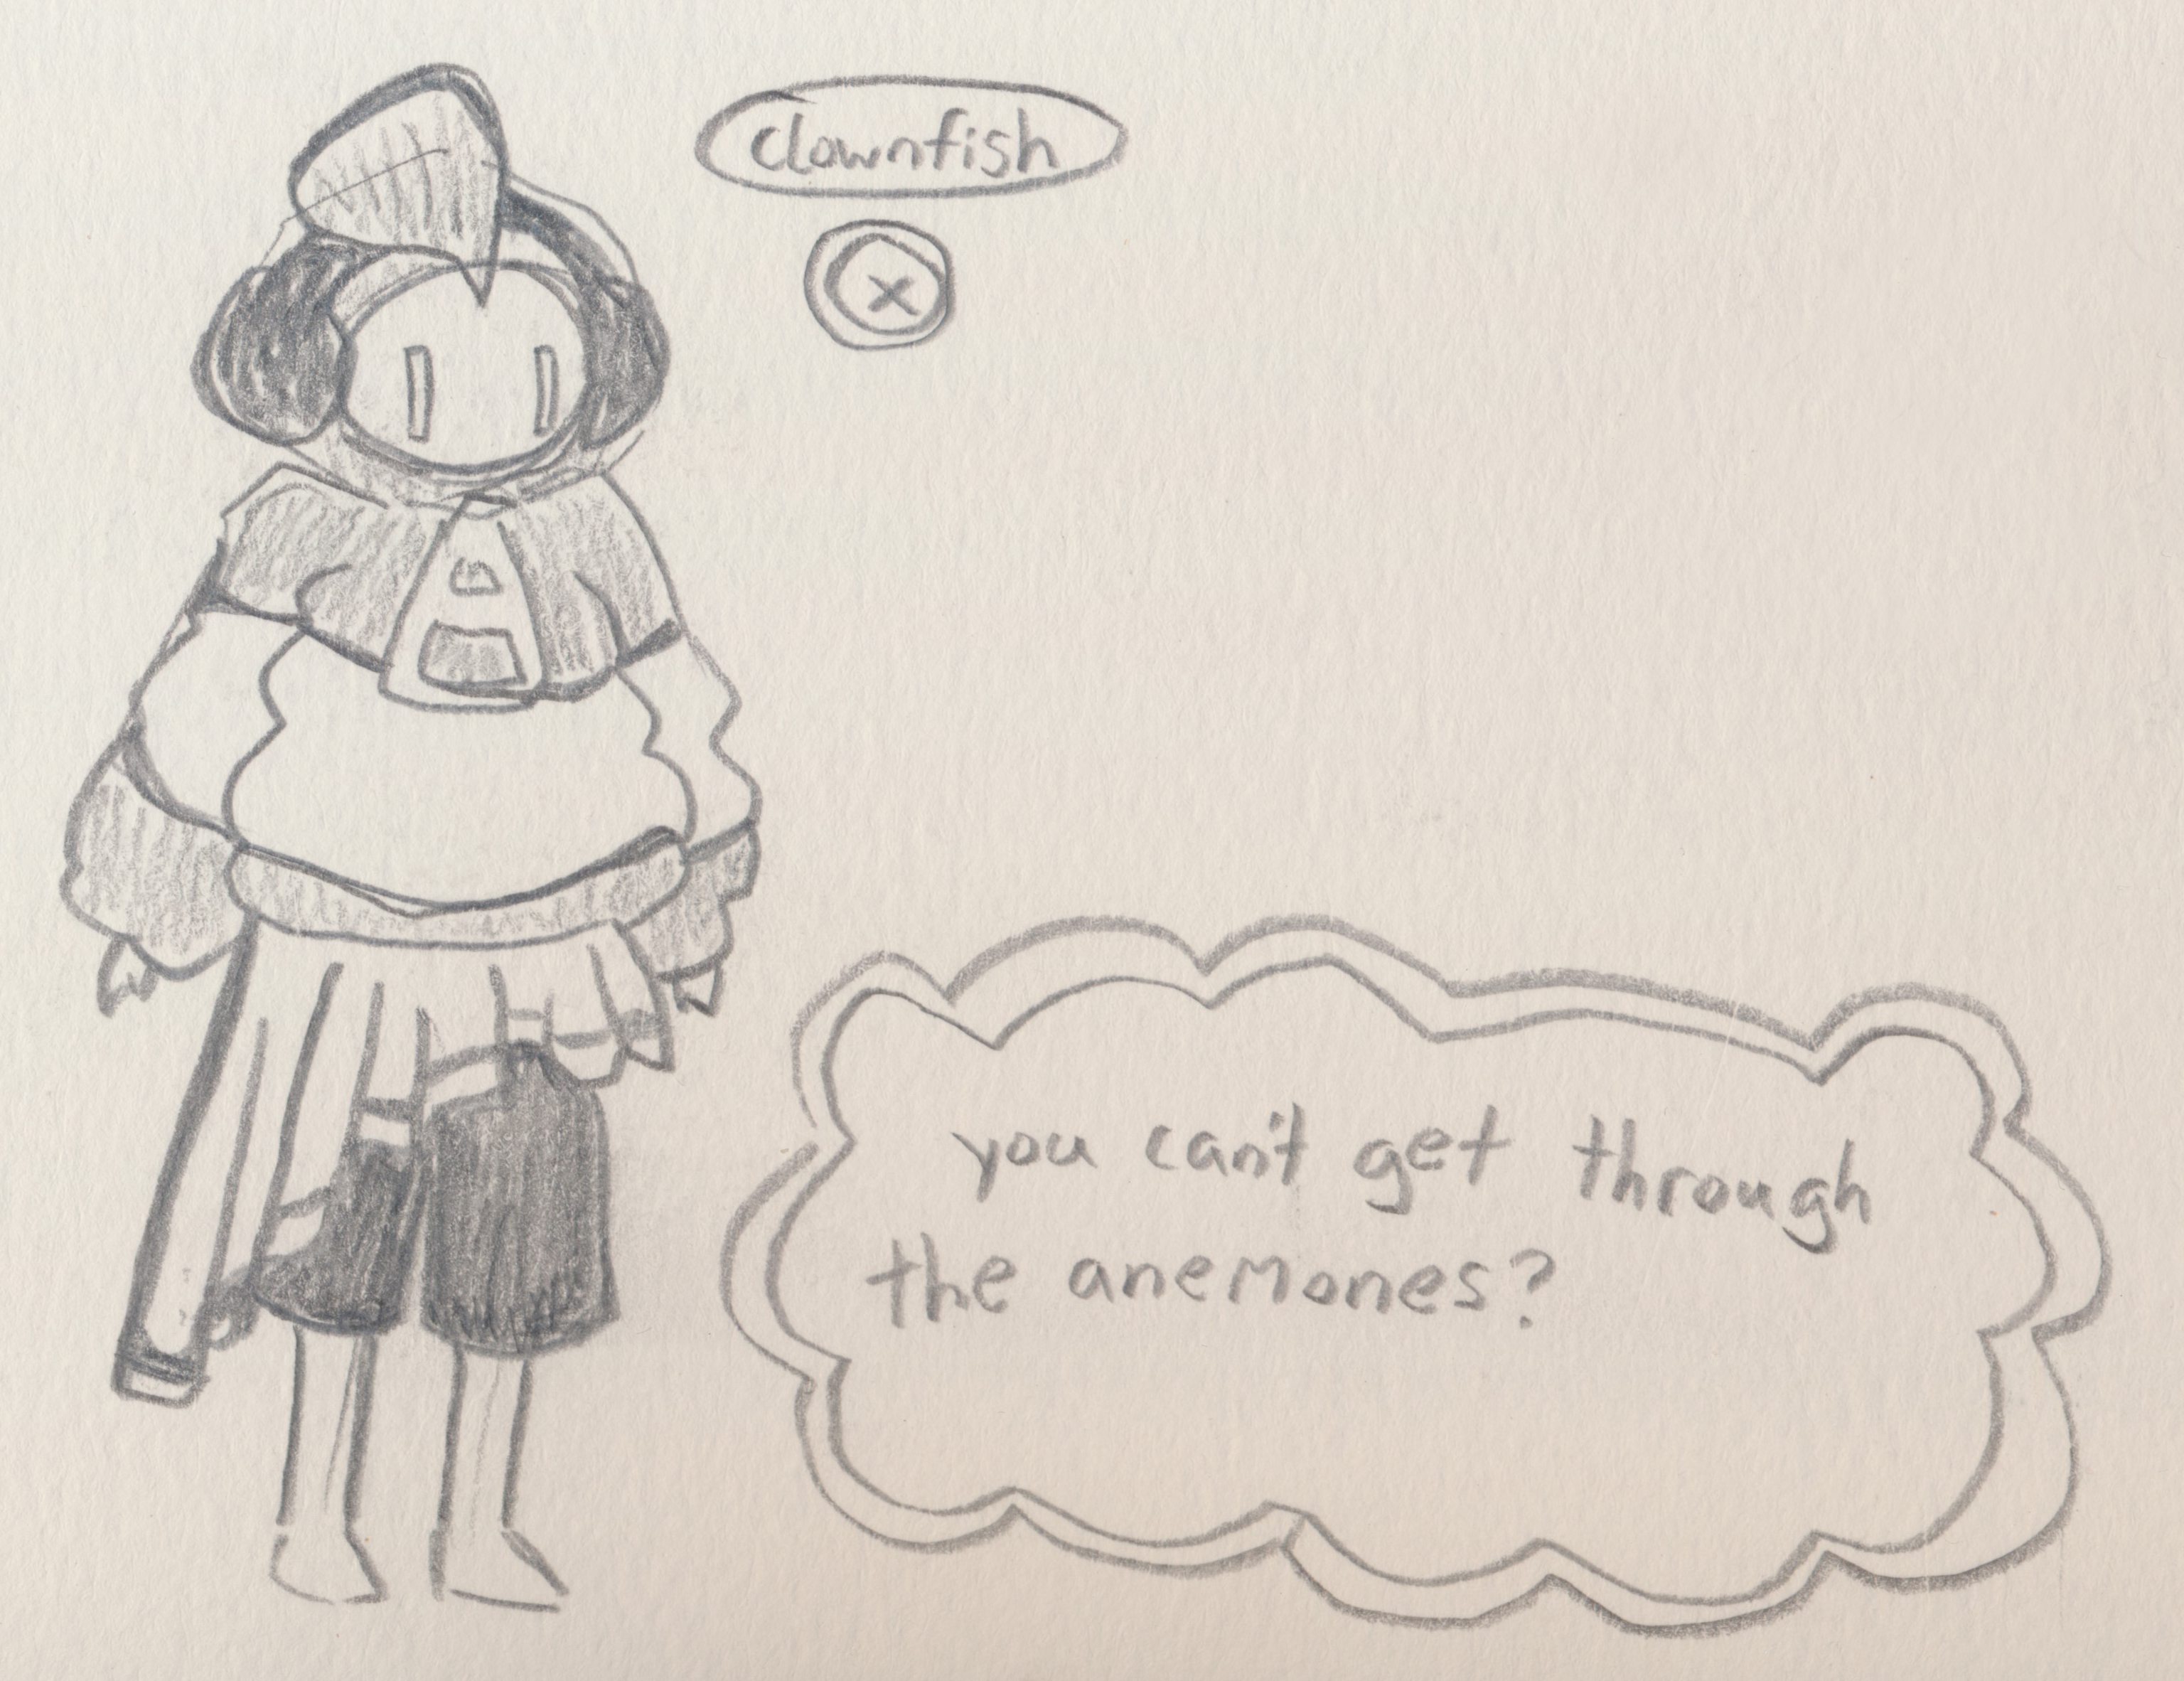 clownfish
x
you can't get through
the anemones?